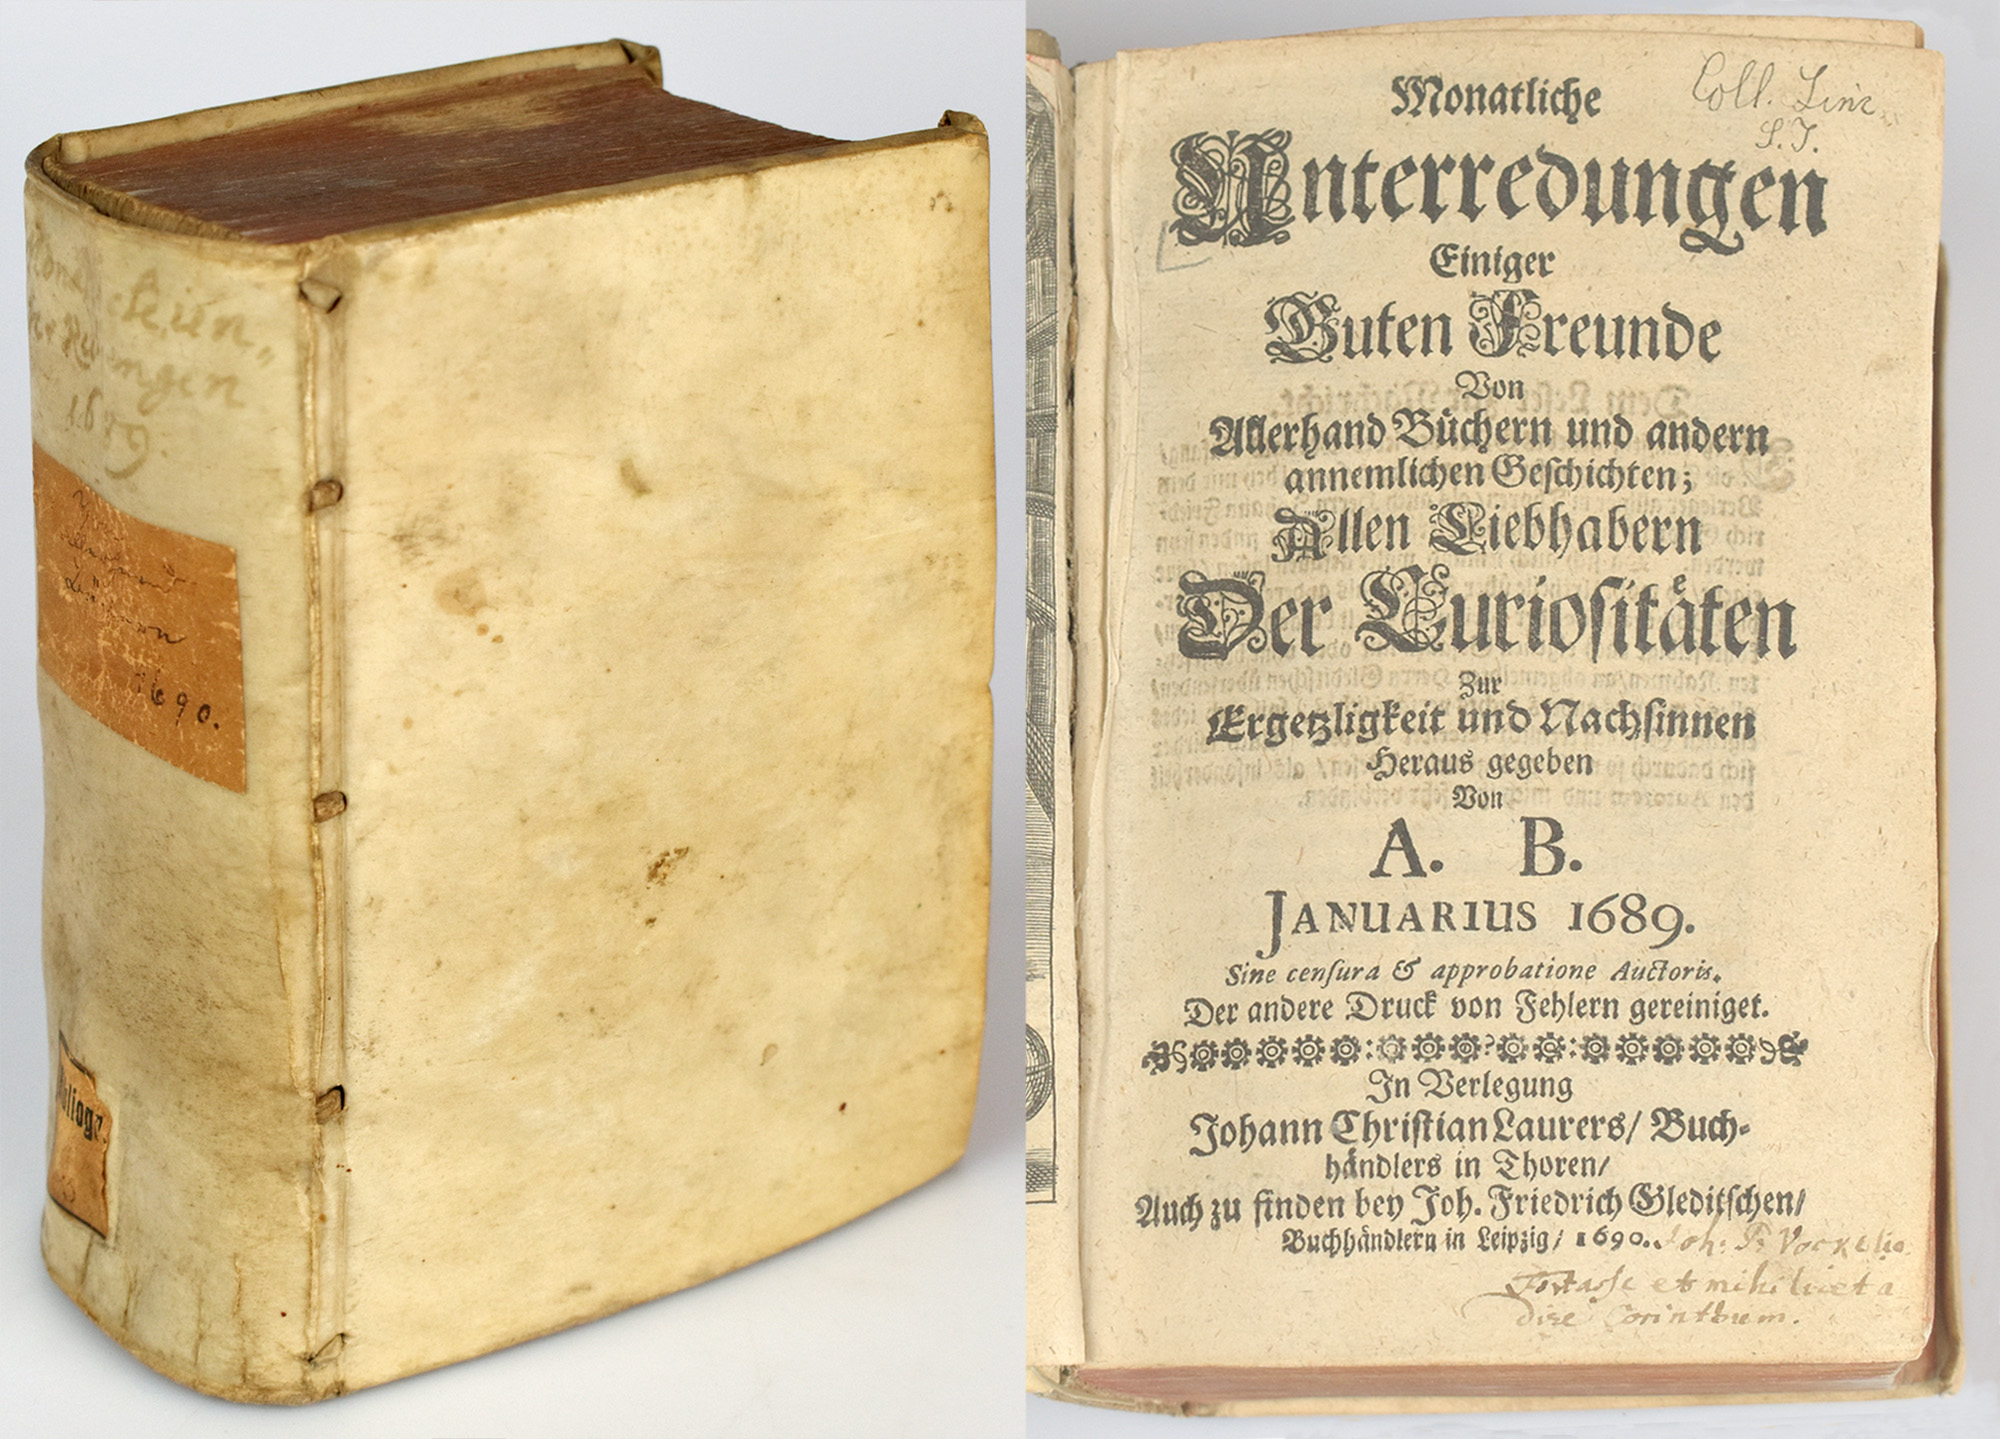 1689.
1690.
Coll. Linc.
S. J.
Monatliche
Unterredungen
Einiger
Guten Freunde
Von
Allerhand Büchern und andern
annemlichen Geſchichten;
Allen Liebhabern
Der Curioſitäten
Zur
Ergetzligkeit und Nachſinnen
Heraus gegeben
Von
A. B.
JANUARIUS 1689.
Sine cenſura & approbatione Auctoris.
Der andere Druck von Fehlern gereiniget.
In Verlegung
Johann Chriſtian Laurers/ Buch-
händlers in Thoren/
Auch zu finden bey Joh. Friedrich Gleditſchen/
Buchhändlern in Leipzig/ 1690.
Joh: F:
et mihi
Corinthum.